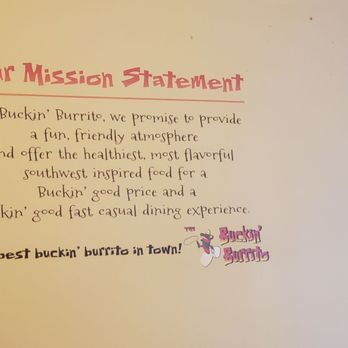 Mission Statement
Buckin' Burrito, we promise to provide
a fun, friendly atmosphere
offer the healthiest, most flavorful
southwest inspired food for a
Buckin' good price and a
good fast casual dining experience.
best buckin' burrito in town!
THE
Buckin'
Burrito